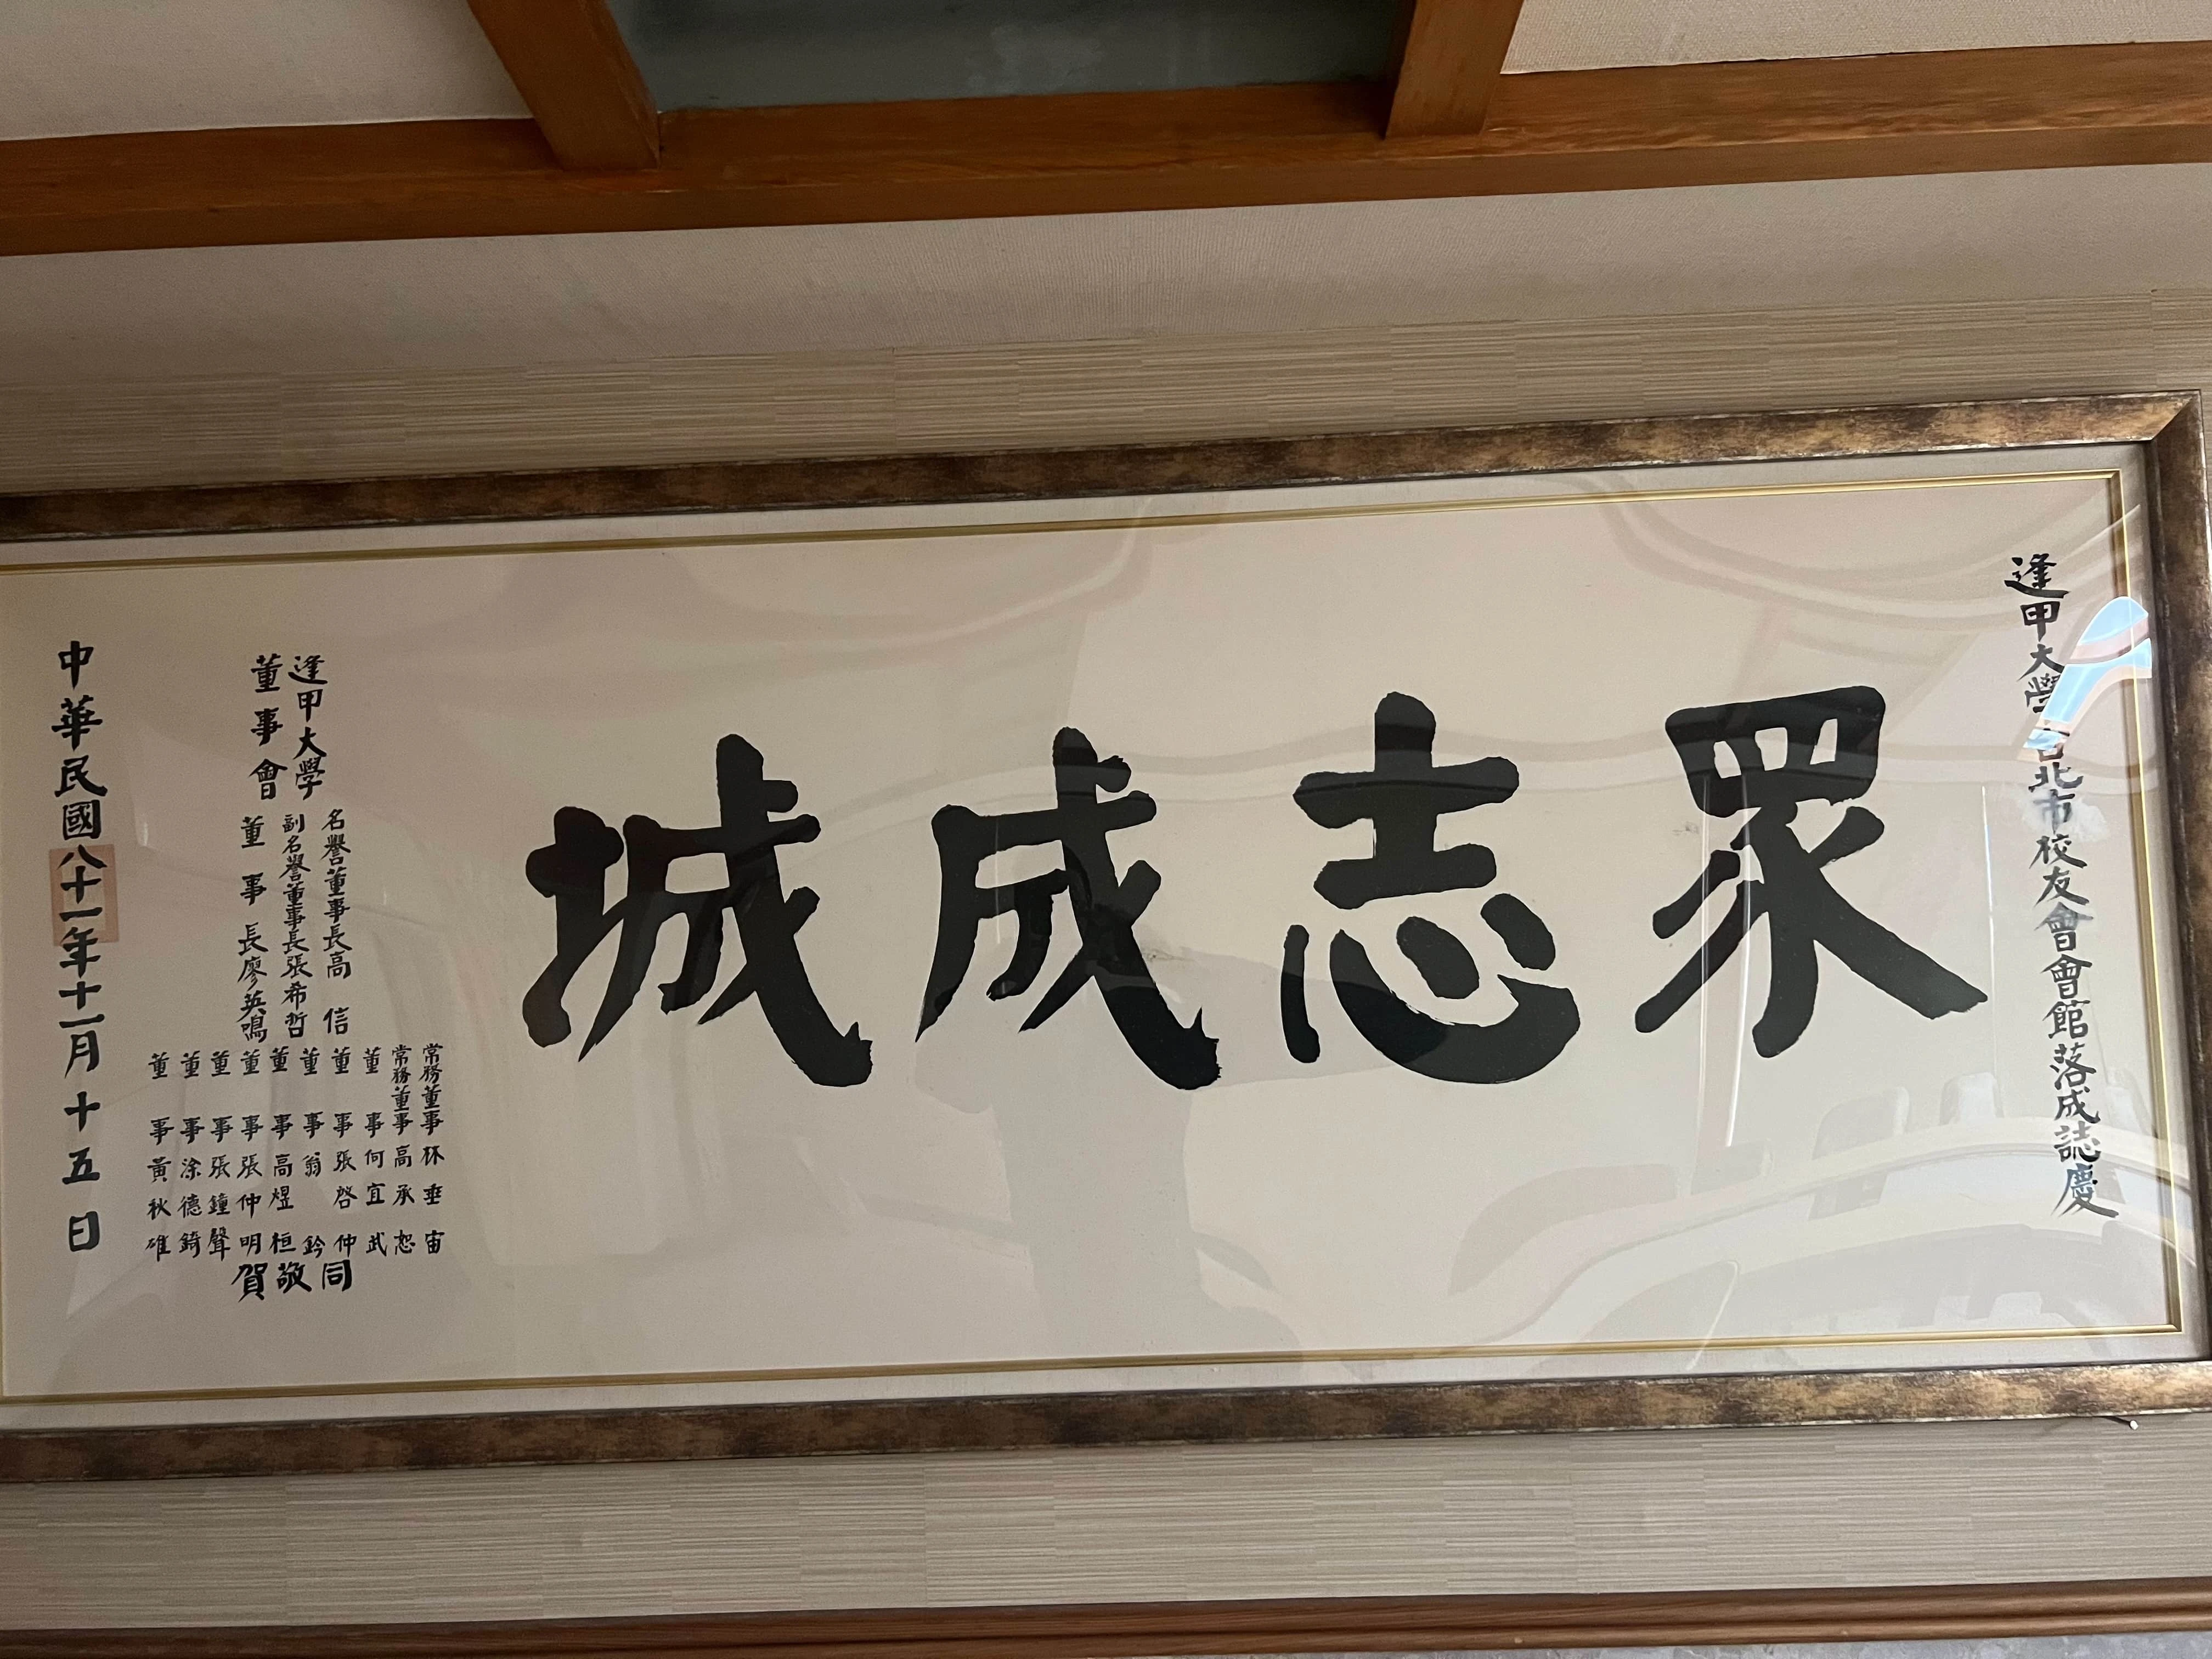 逢甲大學台北市校友會會館落成誌慶
眾志成城
逢甲大學
董事會
名譽董事長高信
副名譽董事長張希哲
董事長廖英鳴
常務董事林垂宙
常務董事高承恕
董事何宜武
董事張啓仲
董事翁鈐
董事高煜桓
董事張仲明
董事張鐘聲
董事涂德錡
董事黃秋雄
同敬賀
中華民國八十一年十一月十五日